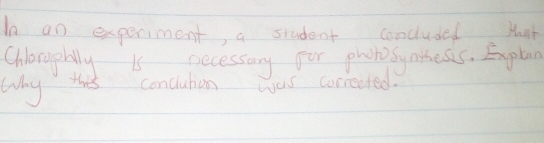 In an experiment, a student concluded that
Chlorophlly is necessary for photosynthesis. Explain
Why this conclution was corrected.